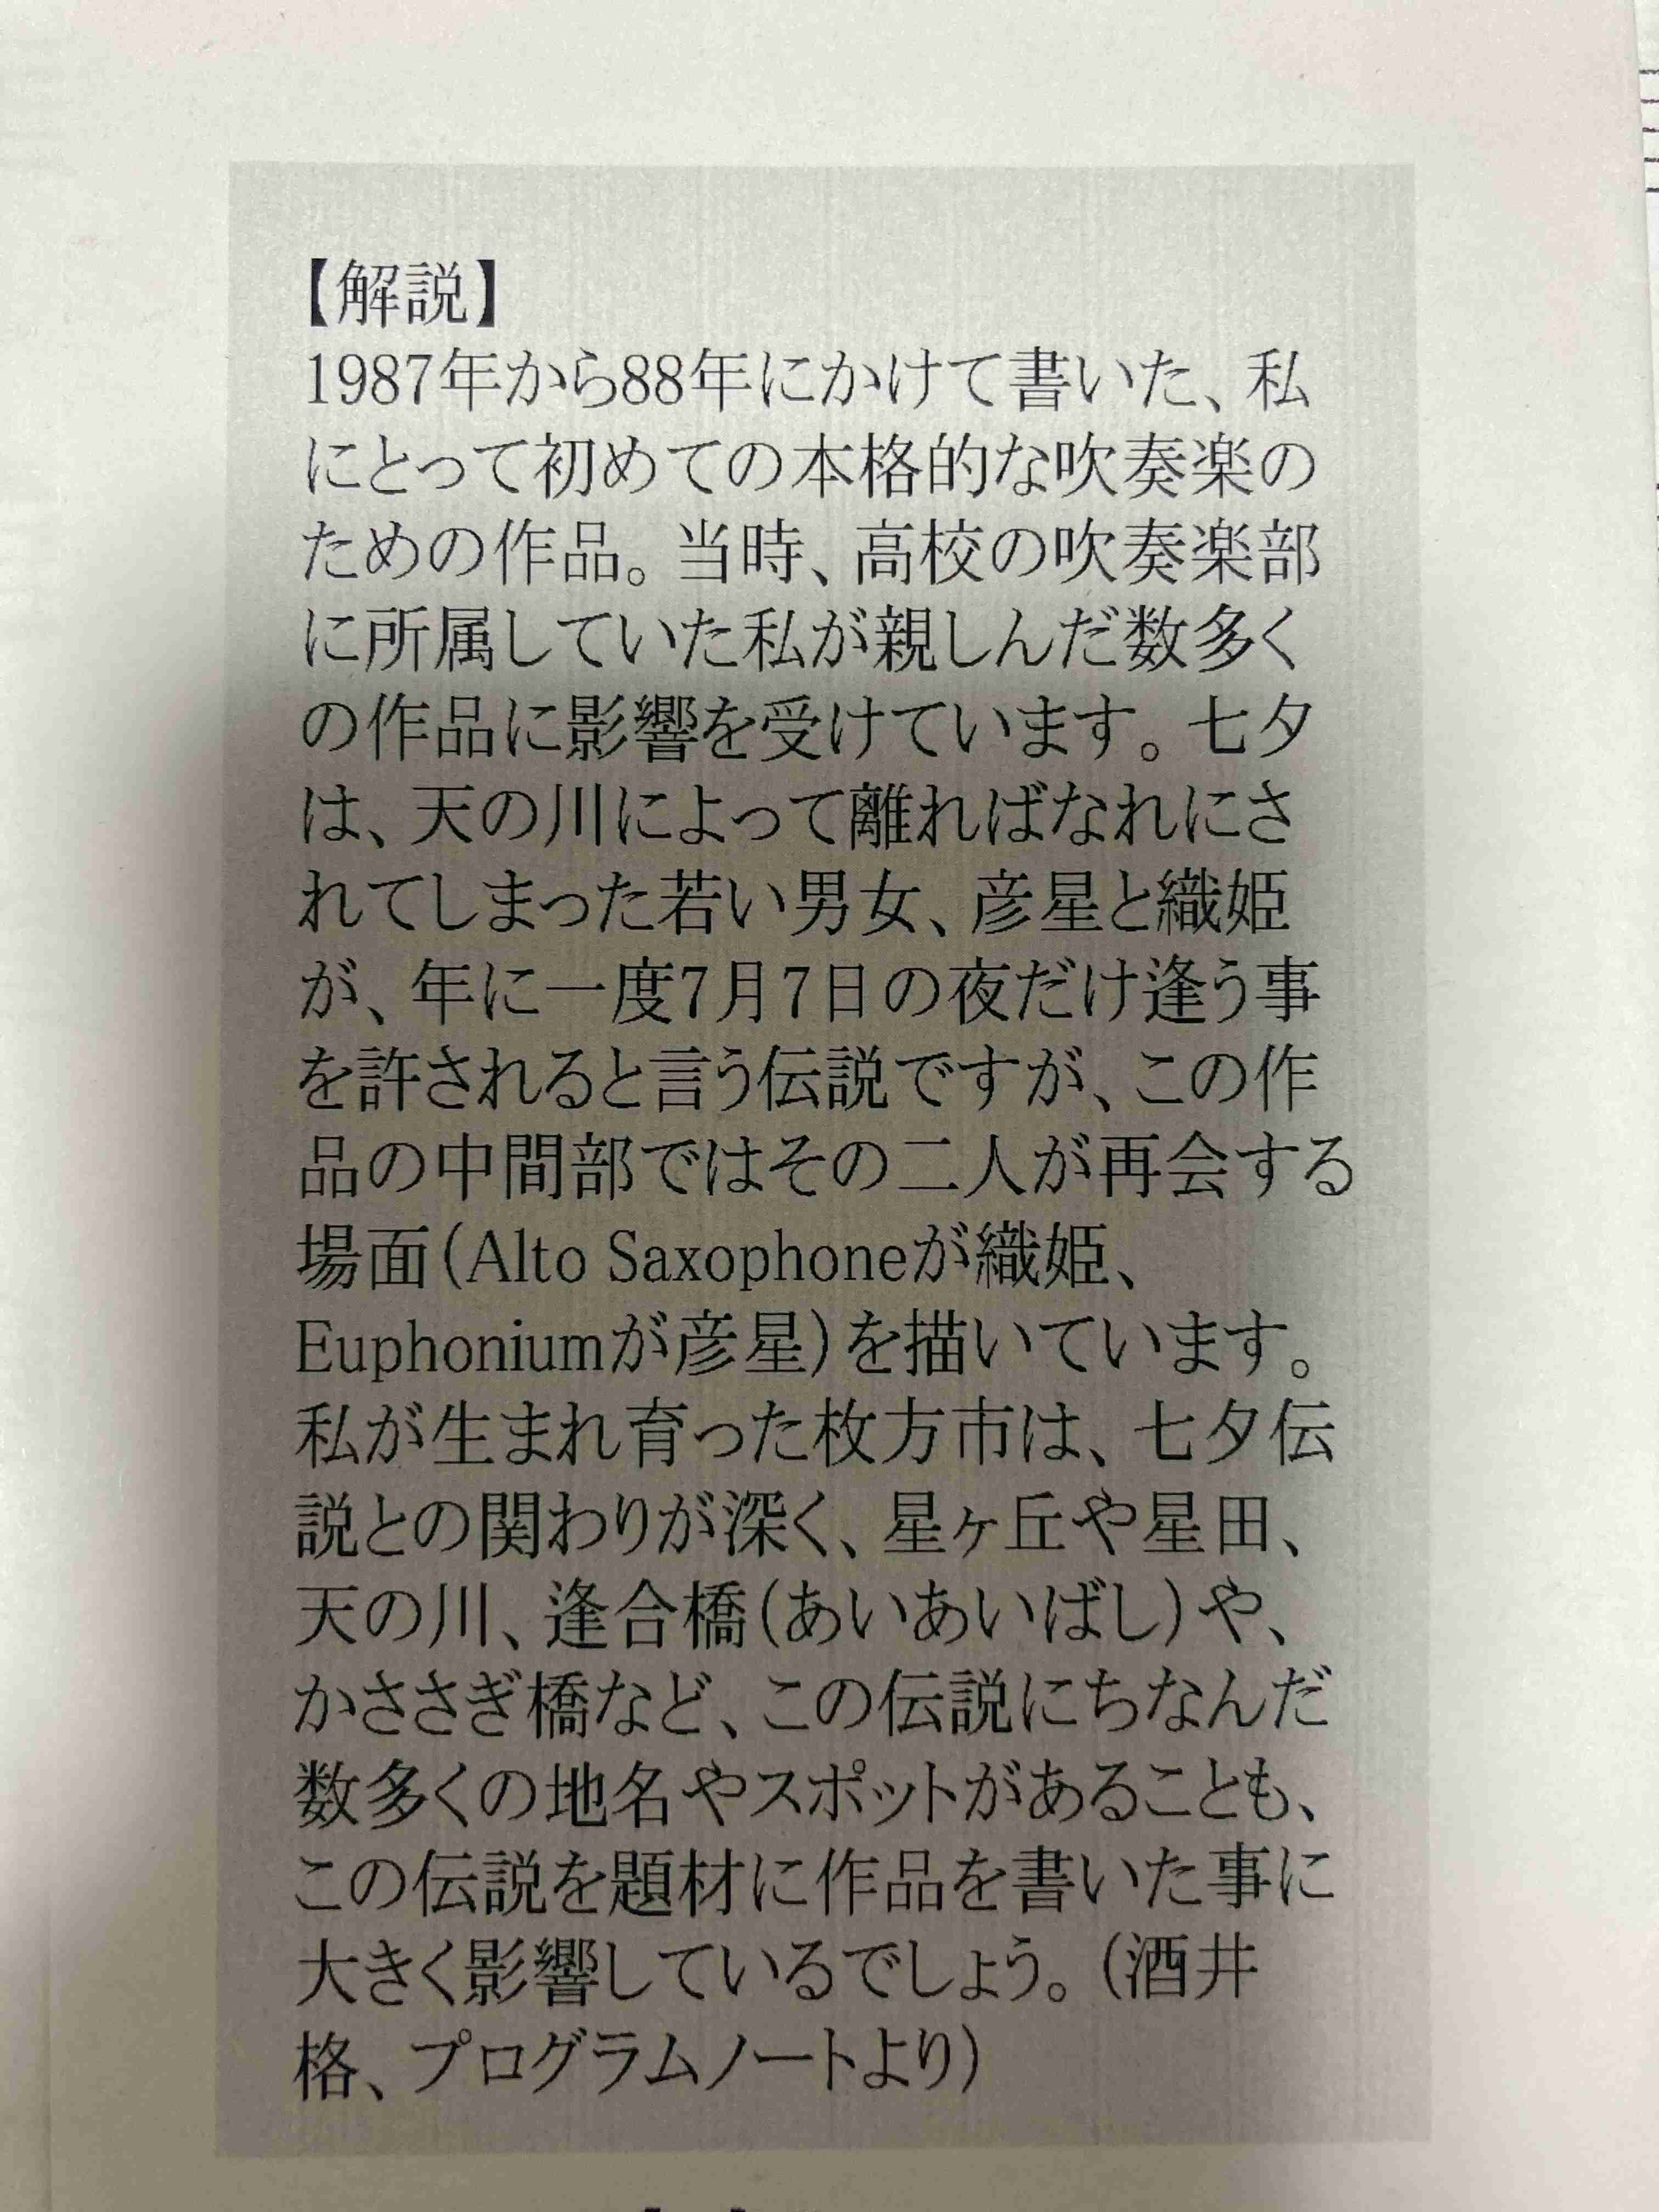 【解説】
1987年から88年にかけて書いた、私
にとって初めての本格的な吹奏楽の
ための作品。当時、高校の吹奏楽部
に所属していた私が親しんだ数多く
の作品に影響を受けています。七夕
は、天の川によって離ればなれにさ
れてしまった若い男女、彦星と織姫
が、年に一度7月7日の夜だけ逢う事
を許されると言う伝説ですが、この作
品の中間部ではその二人が再会する
場面(Alto Saxophoneが織姫、
Euphoniumが彦星)を描いています。
私が生まれ育った枚方市は、七夕伝
説との関わりが深く、星ヶ丘や星田、
天の川、逢合橋(あいあいばし)や、
かささぎ橋など、この伝説にちなんだ
数多くの地名やスポットがあることも、
この伝説を題材に作品を書いた事に
大きく影響しているでしょう。(酒井
格、プログラムノートより)